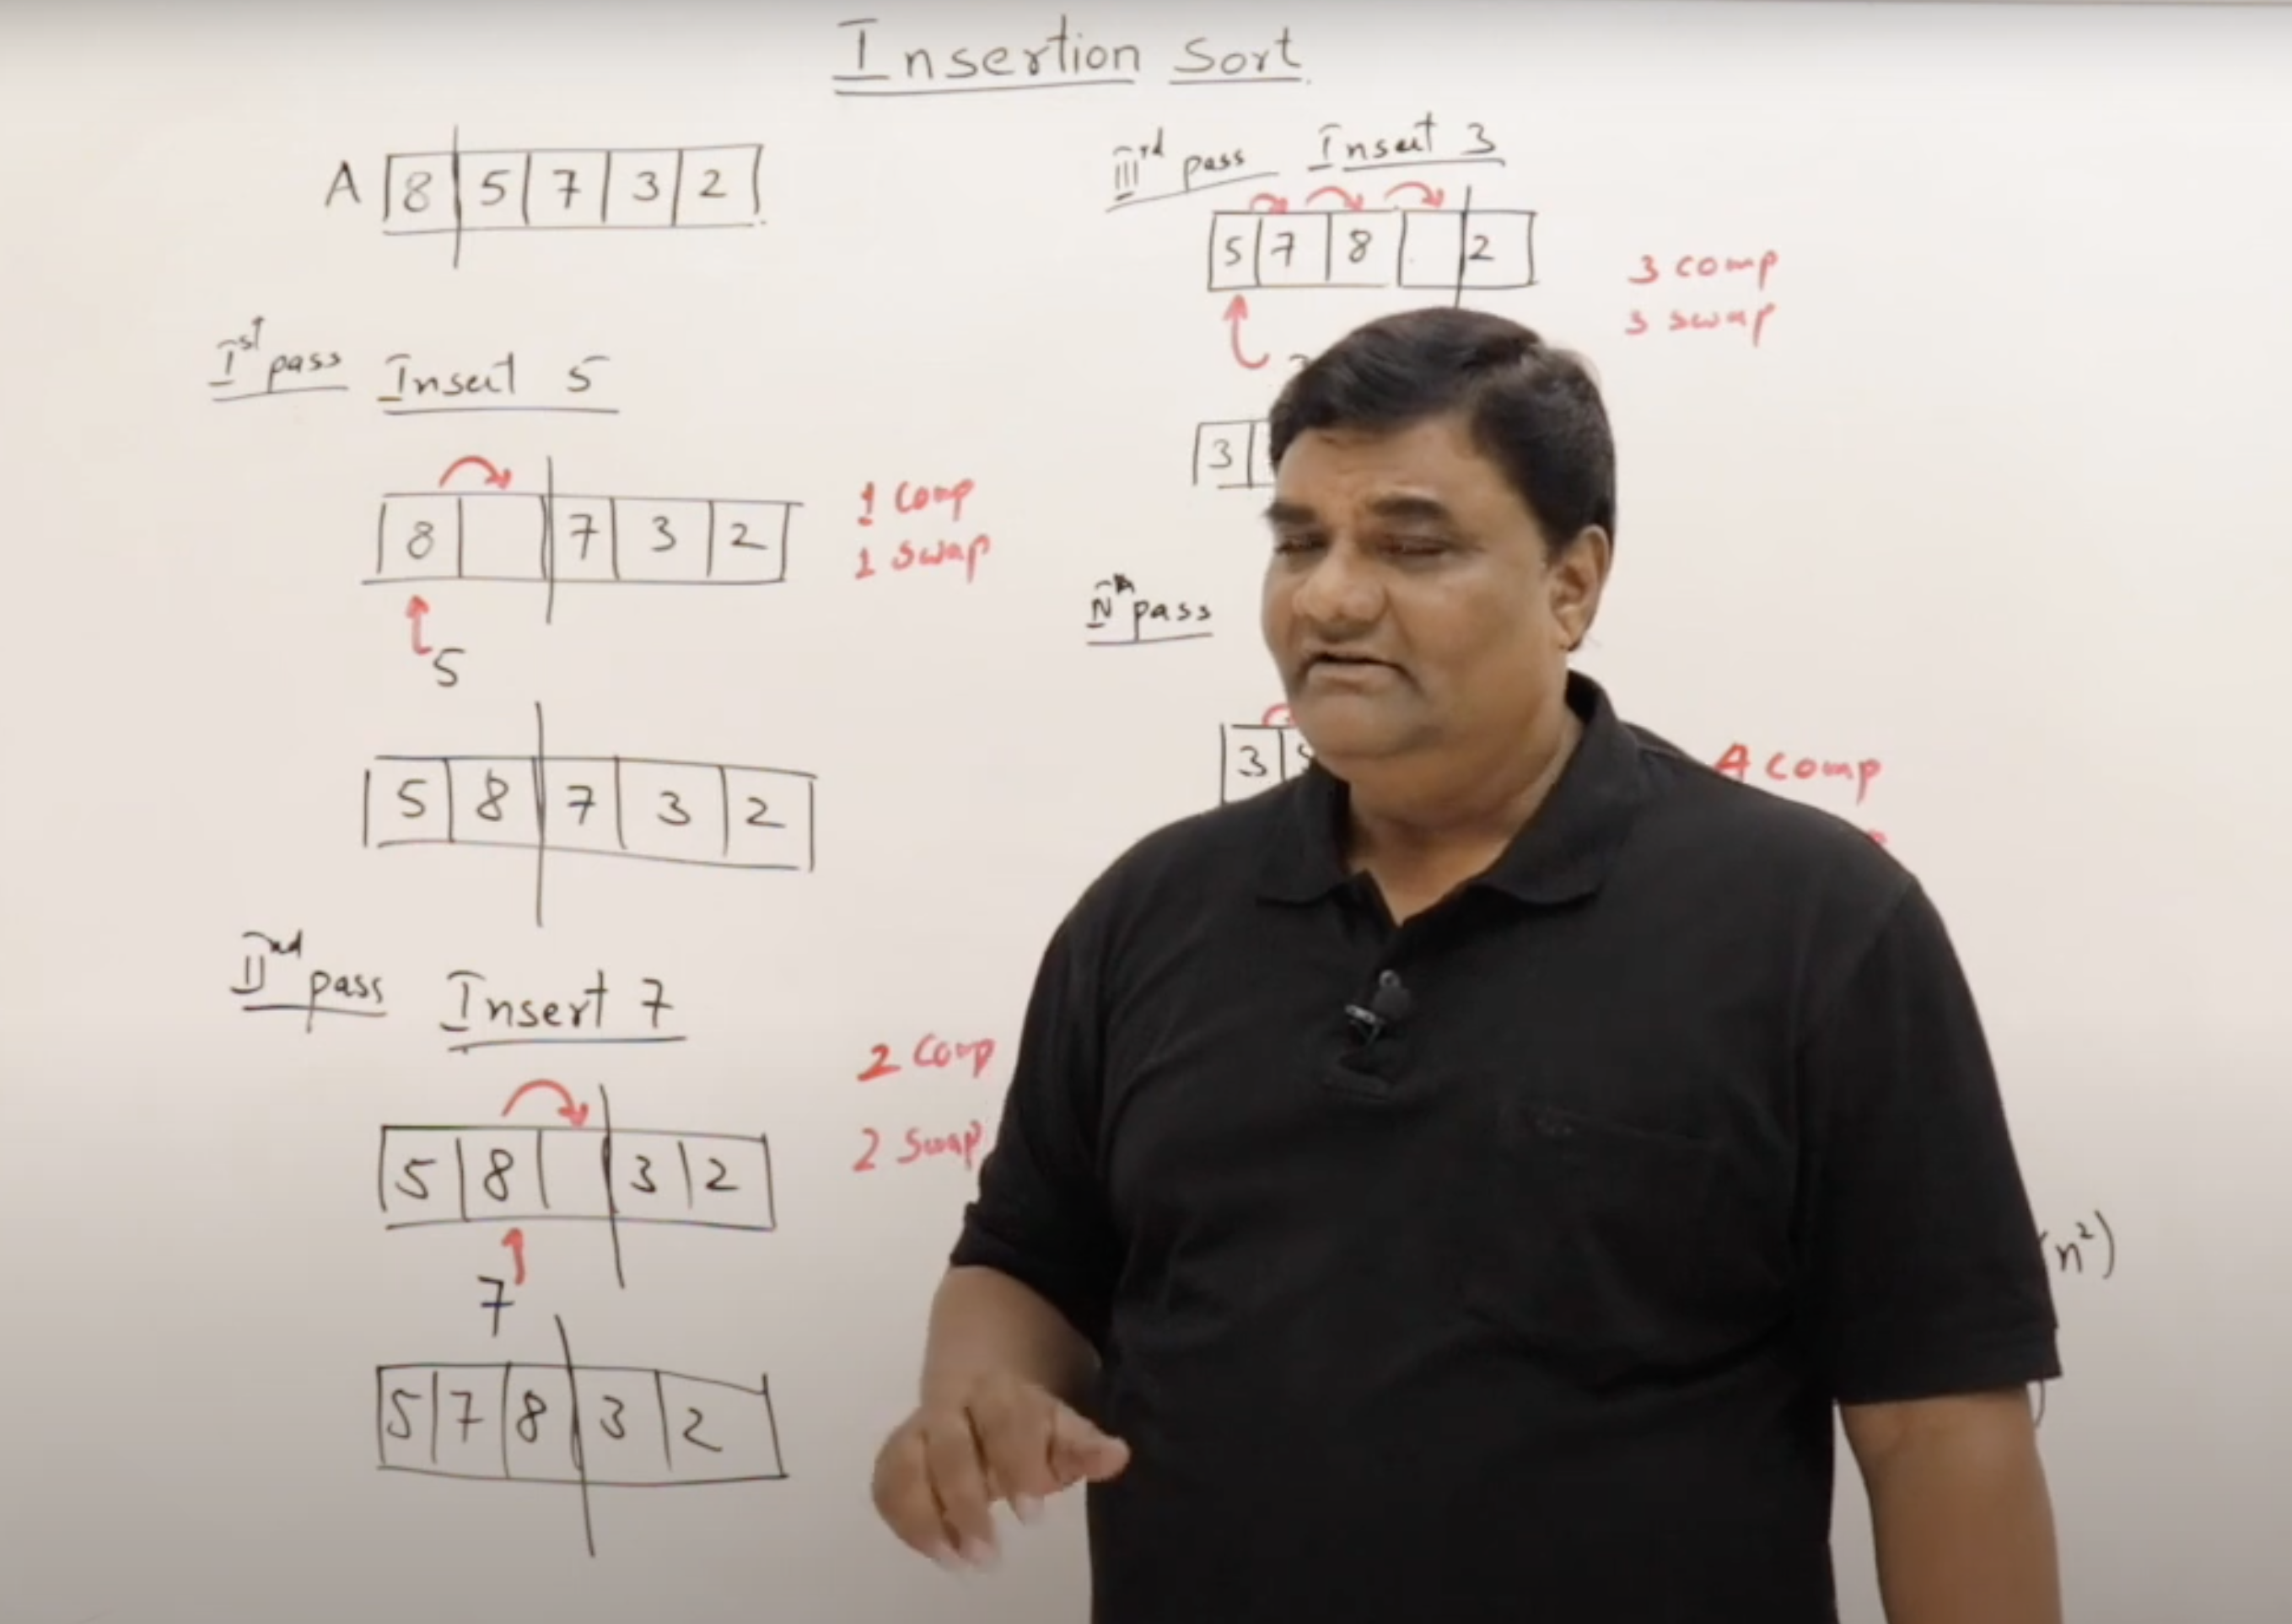 Insertion Sort
A 8 5 7 3 2
Ist pass Insert 5
8 7 3 2
1 Comp
1 Swap
5
5 8 7 3 2
IInd pass Insert 7
5 8 3 2
2 Comp
2 Swap
7
5 7 8 3 2
IIIrd pass Insert 3
5 7 8 2
3 comp
3 swap
3
pass
3
4 comp
(n²)